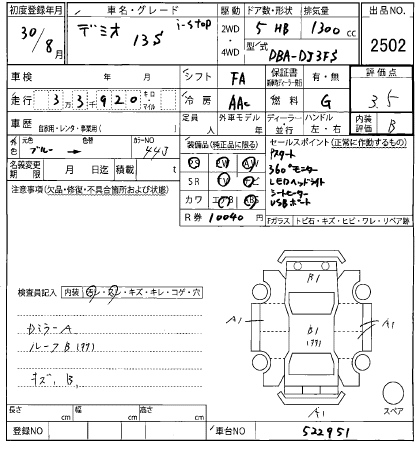 初度登録年月 車名・グレード 駆動 ドア数・形状 排気量 出品NO.
30/8月 デミオ 13S i-stop 2WD・4WD 5 HB 1300cc 2502
型式 DBA-DJ3FS
車検 年 月 シフト FA 保証書 有・無 評価点
走行 3万3千920 キロ・マイル 冷房 AAC 燃料 G 3.5
車歴 自家用・レンタ・事業用( ) 定員 人 外車モデル 年 ディーラー・並行 ハンドル 左・右 内装評価 B
外色 元色 ブルー 色替 → カラーNO 44J 装備品(純正品に限る) セールスポイント(正常に作動するもの)
名義変更期限 月 日迄 積載 t
PS PW AW
SR TV ナビ
カワ エアB ABS
Pスタート
360°モニター
LEDヘッドライト
シートヒーター
USBポート
注意事項(欠品・修復・不具合箇所および状態)
R券 10040円 Fガラス トビ石・キズ・ヒビ・ワレ・リペア跡
検査員記入 内装 汚レ・スレ・キズ・キレ・コゲ・穴
DミラーA
ルーフB
キズ、B
B1
A1
B1
A1
A1
スペア
長さ cm 幅 cm 高さ cm
登録NO 車台NO 522951